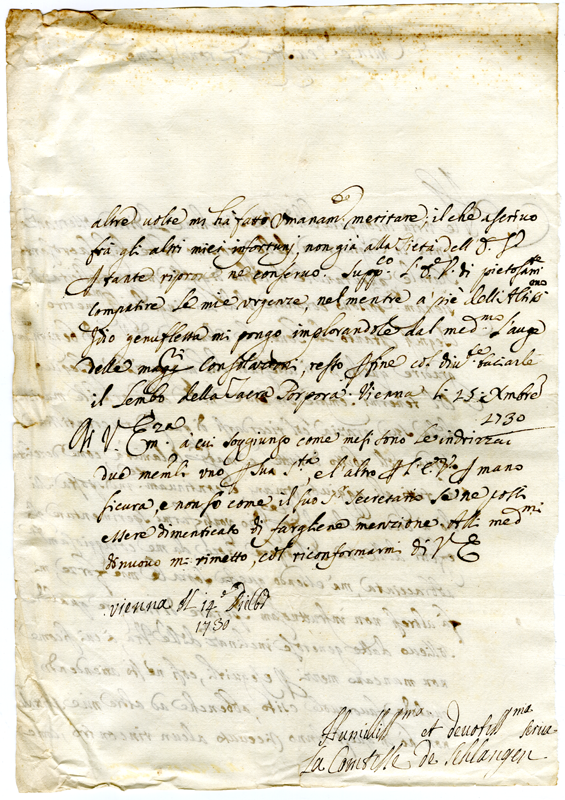 altre volte mi ha fatto umanam.te meritare; il che ascrivo
frà gli altri miei infortunj, non già alla Pietà dell'
tante ne conservo. Supp.co di pietosam.te
compatire le mie urgenze, nel mentre a piè dell'Altiss.mo
Idio genuflessa mi pongo implorandole dal med.mo l'auge
delle magg.ri Consolazioni, resto col baciarle
il Lembo della Sacra Porpora. Vienna li 25 Xmbre
1730
Di V. Em.za a cui soggiungo come mesi sono le indrizzai
due memli. uno p sua S.tà, e l'altro p l'E. V. p mano
sicura, e non so come il suo Secretario se ne possi
essere dimenticato di fargliene menzione. Alli med.mi
di nuovo mi rimetto, col riconfermarmi di V E
Vienna 14
1730
Humiliss.ma et devotiss.ma serva
La Comtesse de Schlangen.